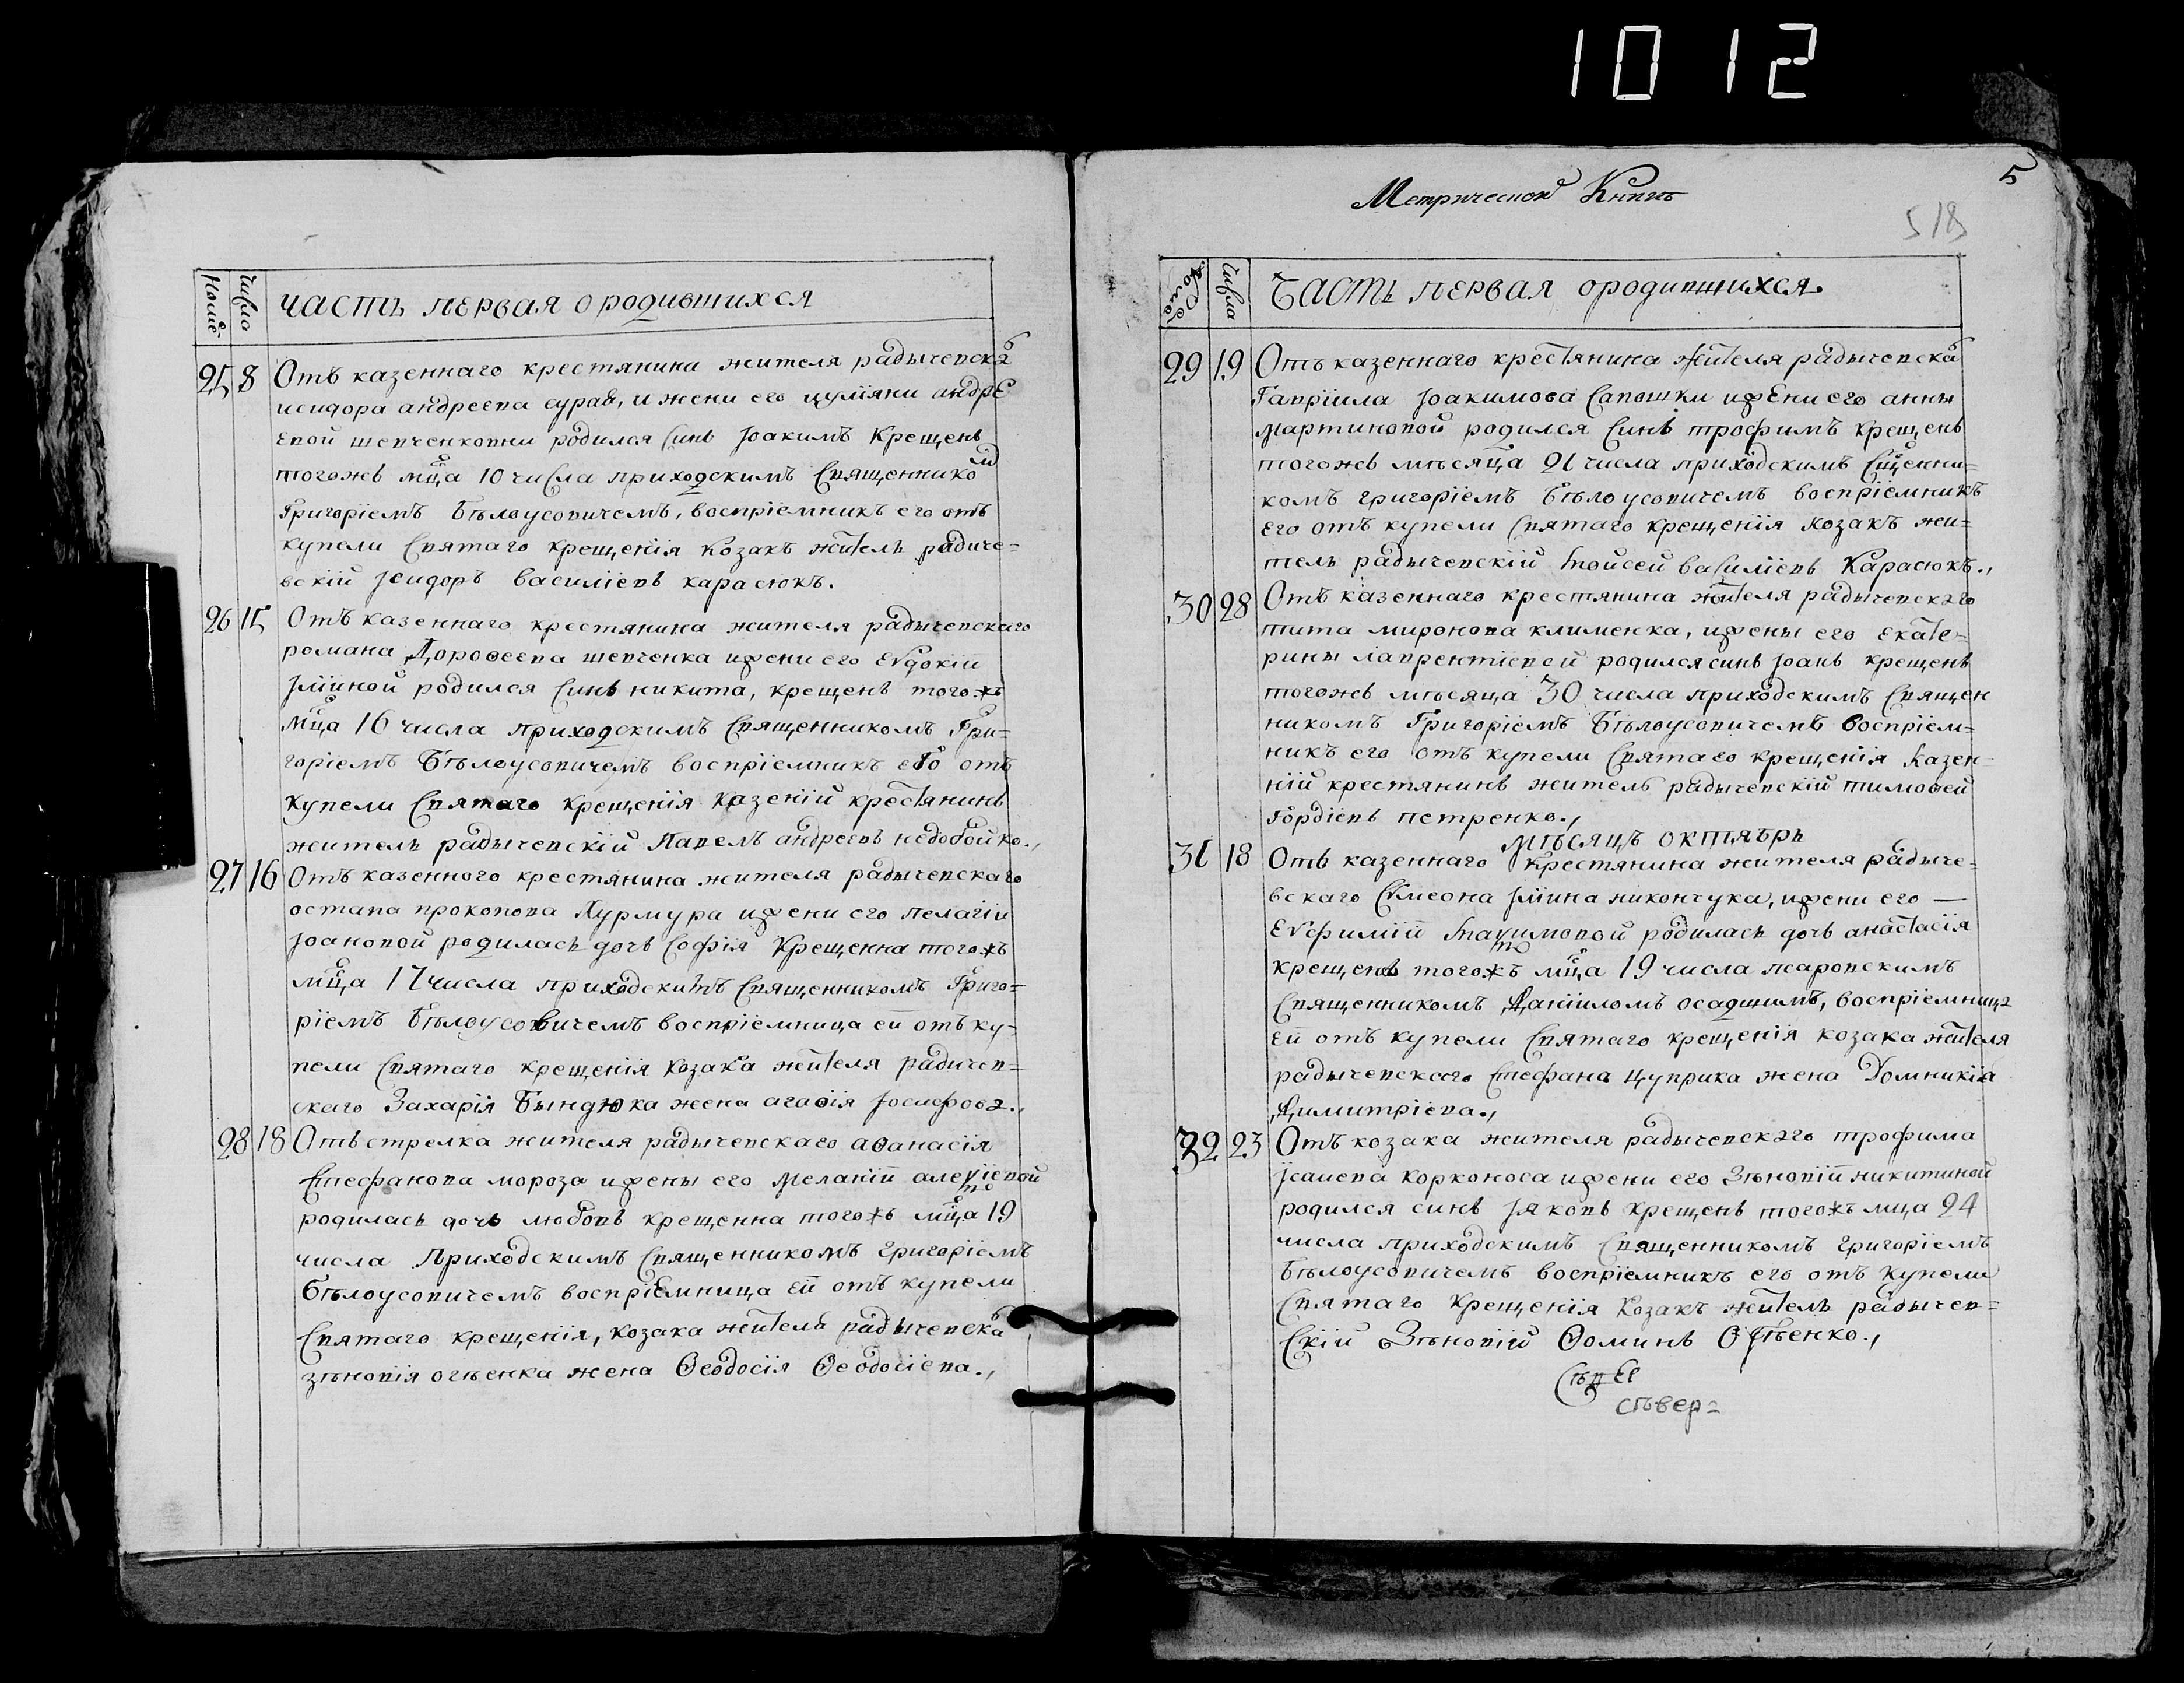 1012
Номе
Числа
часть первая о родившихся
25 8 Отъ казеннаго крестянина жителя радычевскаго
исидора андреева сурая, и жени его иулiяни андре
евой шевченковни родился Синъ Iоакимъ Крещенъ
тогожъ мца 10 числа приходскимъ Священником
Григорiемъ Бѣлоусовичемъ, воспрiемникъ его отъ
купели Святаго крещенiя Козакъ житель радиче=
вскiй Iсидоръ василiевъ карасюкъ.
26 15 Отъ казеннаго крестянина жителя радычевскаго
романа Дорофеева шевченка ижени его Еѵдокiи
Iлiиной родился Синъ никита, крещенъ тогожъ
мца 16 числа приходскимъ Священникомъ Гри=
горiемъ Бѣлоусовичемъ воспрiемникъ его отъ
купели Святаго крещенiя казенiй крестянинъ
житель радычевскiй Павелъ андреевъ недобойко.,
27 16 Отъ казенного крестянина жителя радычевскаго
остапа прокопова Хурмура ижени его пелагiи
Iоановой родилась дочь Софiя Крещенна тогожъ
мца 17 числа приходскимъ Священникомъ Григо=
рiемъ Бѣлоусовичемъ воспрiемница ей отъ ку=
пели Святаго крещенiя козака жителя радичев=
скаго Захарiя Бындюка жена агафiя Iосифова.,
28 18 Отъ стрелка жителя радычевскаго афанасiя
Стефанова мороза ижены его Меланiй алеѯiевой
родилась дочь любовъ крещенна тогожъ мца 19
числа Приходскимъ Священникомъ григорiемъ
Бѣлоусовичемъ воспрiемница ей отъ купели
Святаго крещенiя, козака жителя радычевскаго
зѣновiя огѣенка жена Ѳеодосiя Ѳеодосiева.,
Метрической Книгъ
5
518
Числа
Часть первая ородившихся.
29 19 Отъ казеннаго крестянина жителя радычевскаго
Гаврiила Iоакимова Сапошки ижени его анны
мартиновой родился Синъ трофимъ крещенъ
тогожъ мѣсяца 21 числа приходскимъ Сщенни=
комъ григорiемъ Бѣлоусовичемъ воспрiемникъ
его отъ купели Святаго крещенiя козакъ жи=
тель радычевскiй мойсей василiевъ Карасюкъ.,
30 28 Отъ казеннаго крестянина жителя радычевскаго
тита миронова клименка, ижены его екате=
рины лаврентiевой родился синъ Iоанъ крещенъ
тогожъ мѣсяца 30 числа приходскимъ Священ
никомъ Григорiемъ Бѣлоусовичемъ воспрiем=
никъ его отъ купели Святаго крещенiя казен=
нiй крестянинъ житель радычевскiй тимофей
Гордiевъ петренко.,
мѣсяцъ октябрь
31 18 Отъ казеннаго крестянина жителя радыче=
вскаго Сѵмеона Iлiина никончука, ижени его —
Еѵфимiй маѯимовой родилась дочь анастасiя
крещена тогожъ мца 19 числа жаровскимъ
Священникомъ Данiиломъ осадшимъ, воспрiемница
ей отъ купели Святаго крещенiя козака жителя
радычевскаго Стефана Цуприка жена Домникiа
Димитрiева.,
32 23 Отъ козака жителя радычевскаго трофима
Iсаиева корконоса ижени его Зѣновiй никитиной
родился синъ Iяковъ крещенъ тогожъ мца 24
числа приходскимъ Священникомъ григорiемъ
Бѣлоусовичемъ воспрiемникъ его отъ купели
Святаго Крещенiя Козакъ житель радычев=
Скiй Зѣновiй Ѳоминъ Огѣенко.,